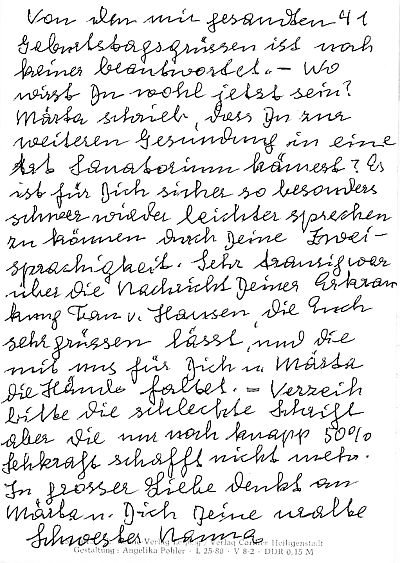 Von den mir gesandten 41
Geburtstagsgrüssen ist noch
keiner beantwortet. – Wo
wirst Du wohl jetzt sein?
Märta schrieb, dass Du zur
weiteren Gesundung in eine
Art Sanatorium kämest? Es
ist für Dich sicher so besonders
schwer wieder leichter sprechen
zu können durch Deine Zwei-
sprachigkeit. Sehr traurig war
über die Nachricht Deiner Erkran
kung Frau v. Hansen, die Euch
sehr grüssen lässt, und die
mit uns für Dich u. Märta
die Hände faltet. – Verzeih
bitte die schlechte Schrift
aber die nur noch knapp 50%
Sehkraft schafft nicht mehr.
In grosser Liebe denkt an
Märta u. Dich Deine uralte
Schwester Nanna
Verlag Heiligenstadt
Gestaltung: Angelika Pohler · L 25-80 · V 8-2 · DDR 0,15 M